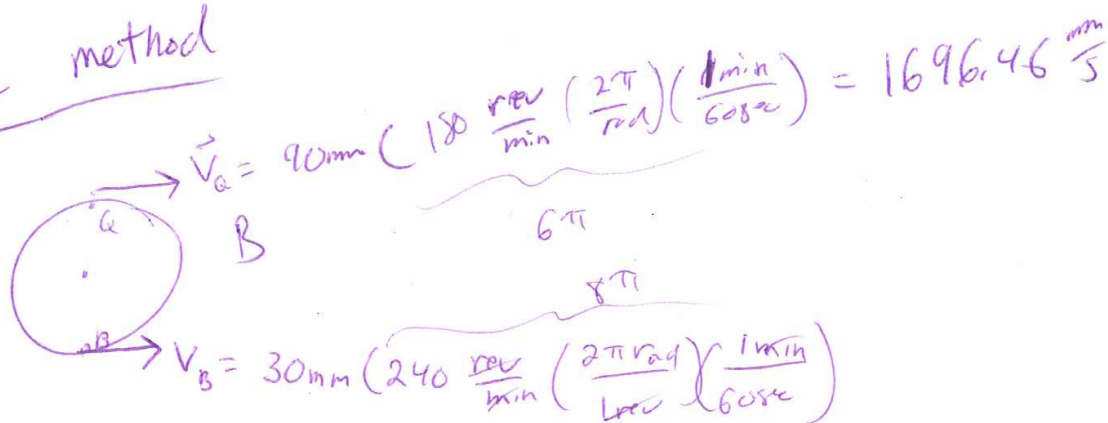 method
V⃗_Q = 90mm ( 180 rev/min (2π/rad)(1min/60sec) = 1696.46 mm/s
Q
B
6π
8π
B
V_B = 30mm (240 rev/min (2π rad/1rev)(1min/60sec)